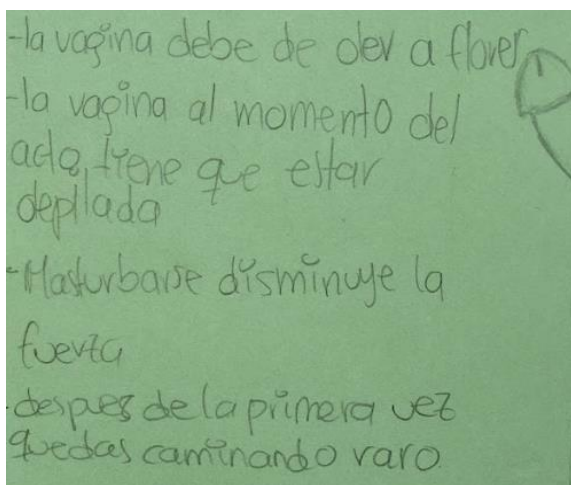 -la vagina debe de oler a flores
-la vagina al momento del
acto, tiene que estar
depilada
-Masturbarse disminuye la
fuerza
-despues de la primera vez
quedas caminando raro